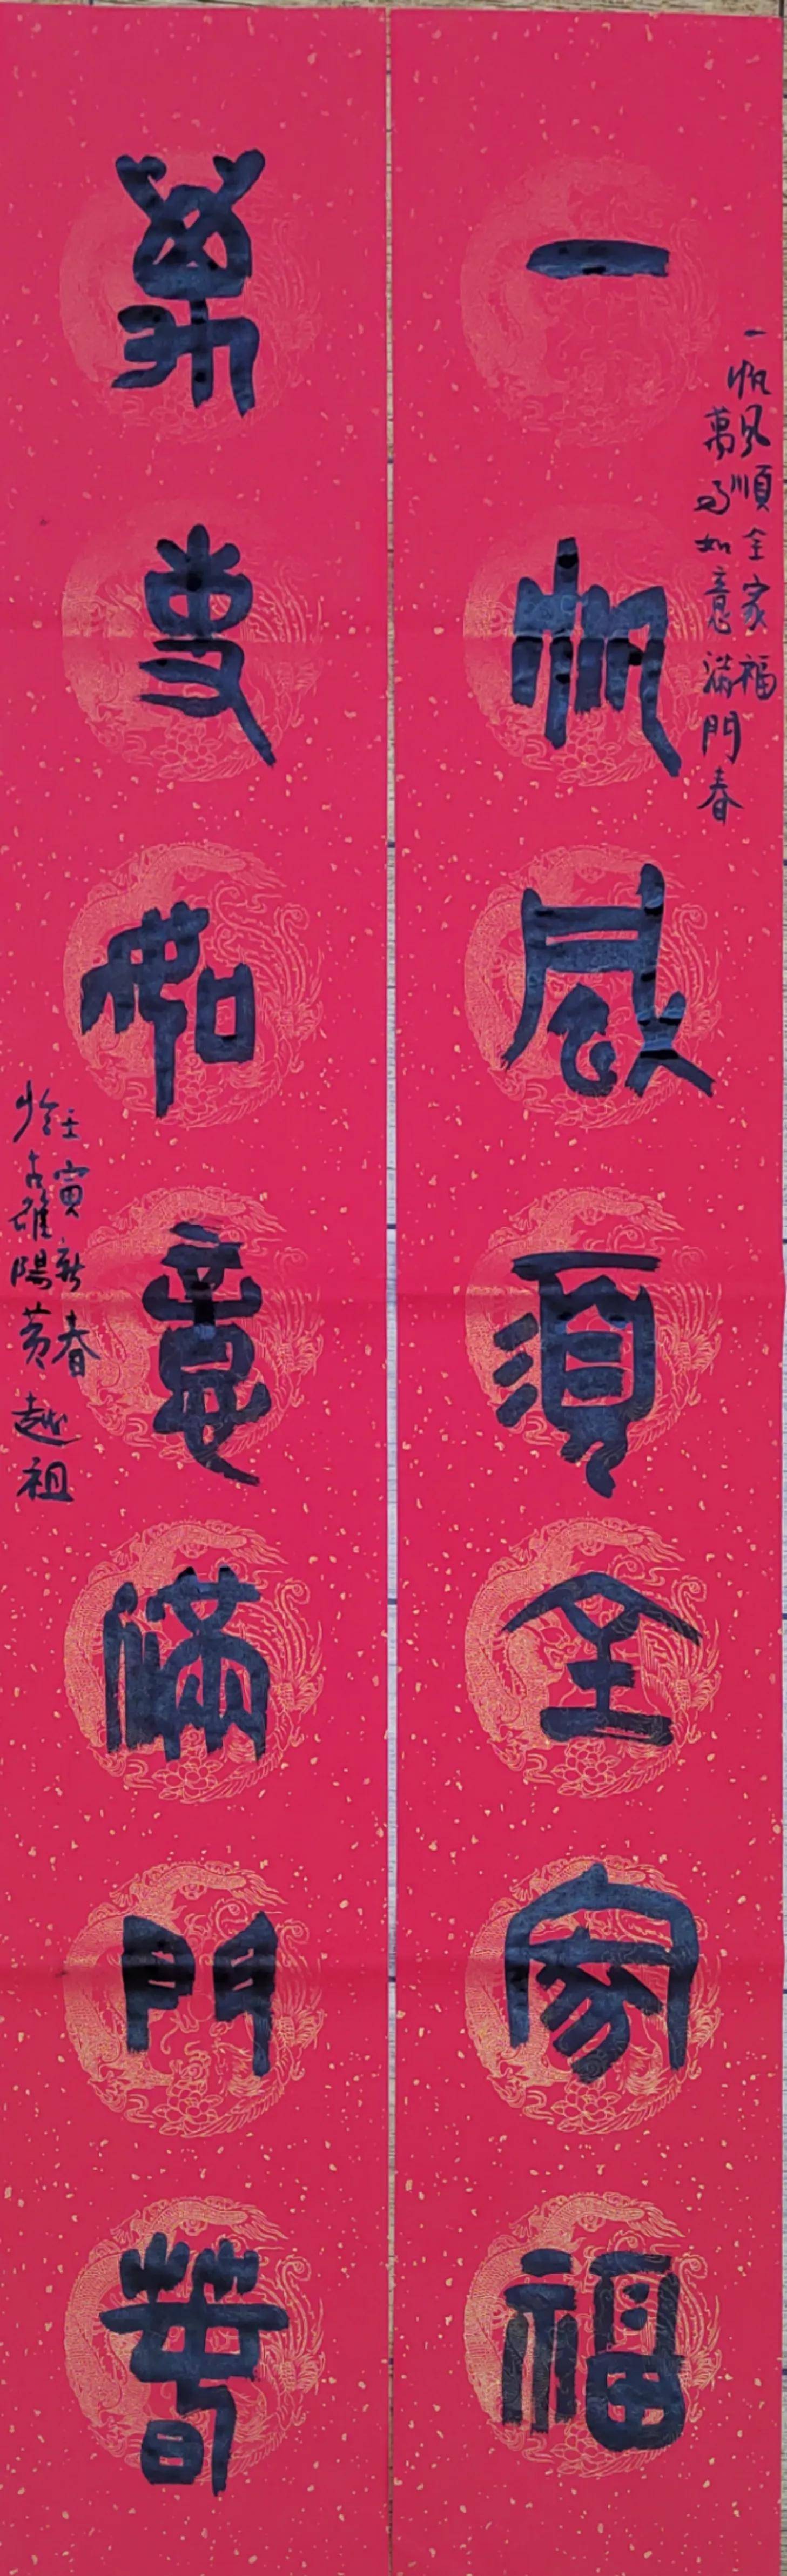 一帆風順全家福
一帆風順全家福
萬事如意滿門春
萬事如意滿門春
壬寅新春
於古雒陽黃越祖